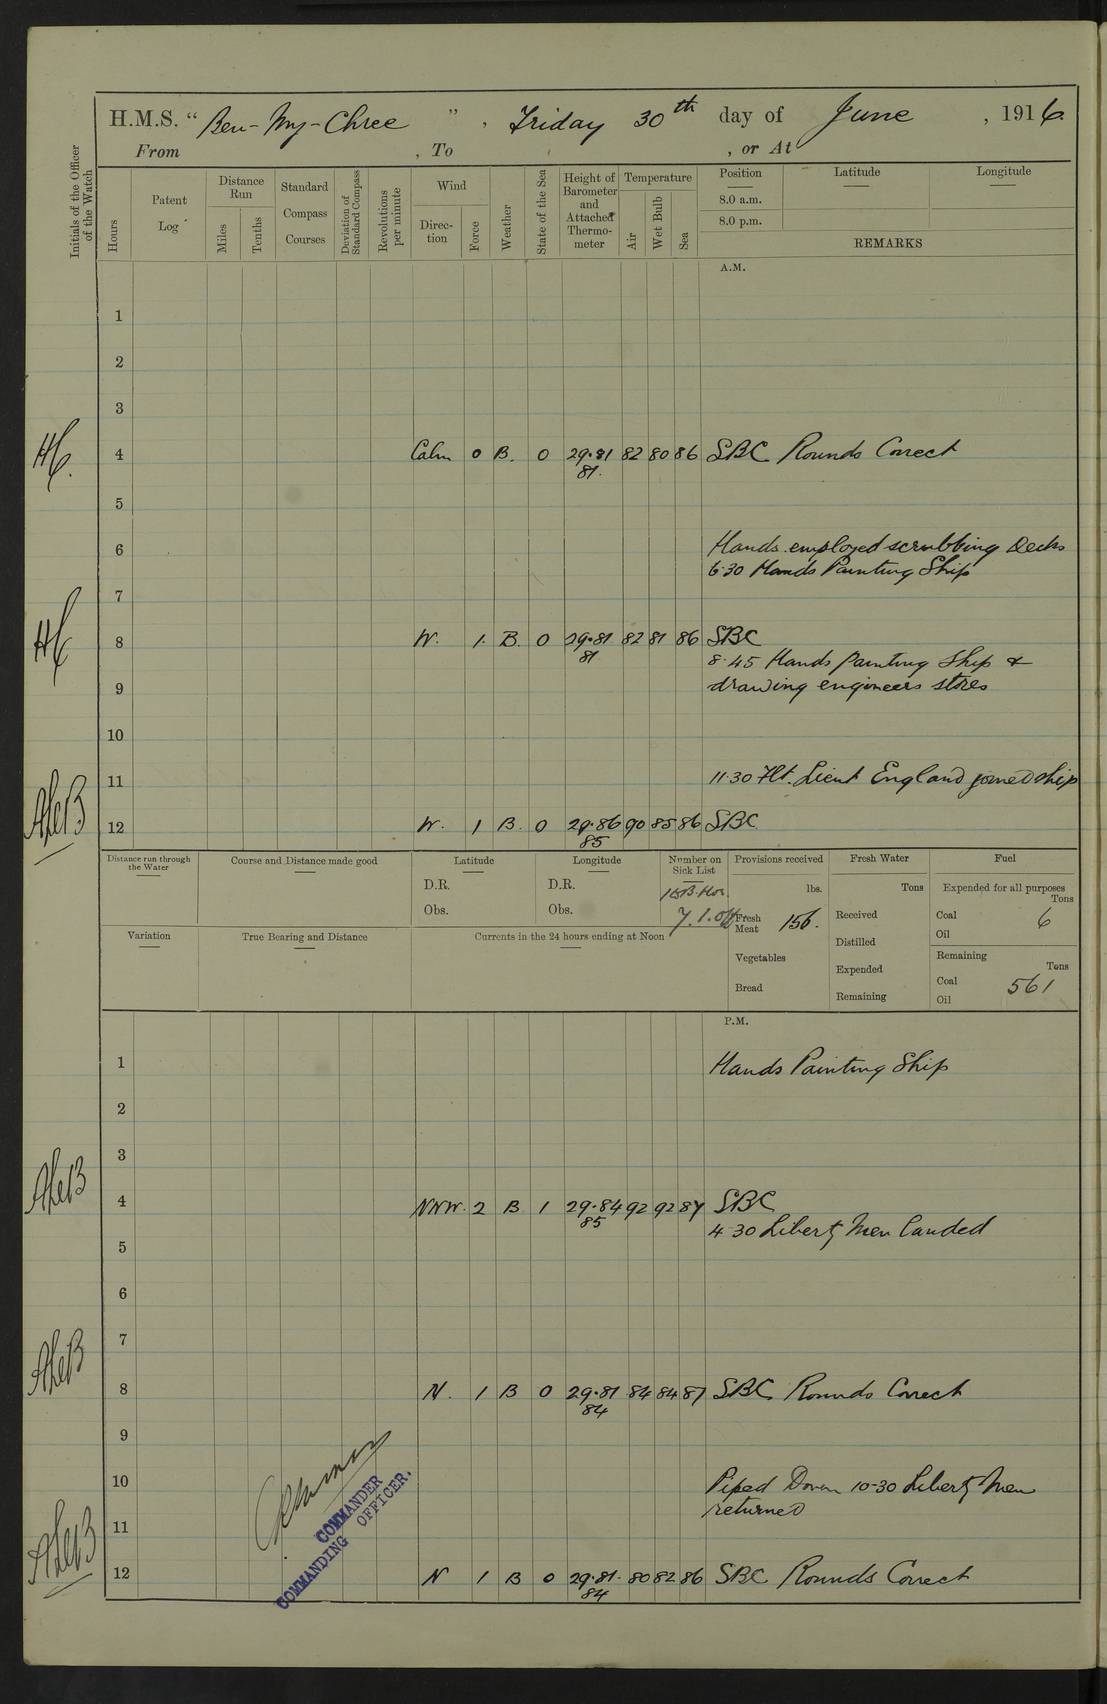 H.M.S. "Ben-My-Chree", Friday 30th day of June, 1916
From , To , or At
Initials of the Officer of the Watch
Hours
Patent Log
Distance Run
Miles
Tenths
Standard Compass Courses
Deviation of Standard Compass
Revolutions per minute
Wind
Direction
Force
Weather
State of the Sea
Height of Barometer and Attached Thermometer
Temperature
Air
Wet Bulb
Sea
Position
Latitude
Longitude
8.0 a.m.
8.0 p.m.
REMARKS
A.M.
1
2
3
4 Calm 0 B. 0 29.81 82 80 86 SBC Rounds Correct
81.
5
6 Hands employed scrubbing Decks
6.30 Hands Painting Ship
7
8 W. 1. B. 0 29.81 82 81 86 SBC
81
8.45 Hands painting Ship &
9 drawing engineers stores
10
11 11.30 Flt. Lieut England joined ship
12 W. 1 B. 0 29.86 90 85 86 SBC
85
Distance run through the Water
Course and Distance made good
Latitude
D.R.
Obs.
Longitude
D.R.
Obs.
Number on Sick List
7.1.Off
Provisions received
lbs.
Fresh Meat 156.
Vegetables
Bread
Fresh Water
Tons
Received
Distilled
Expended
Remaining
Fuel
Expended for all purposes
Tons
Coal 6
Oil
Remaining
Tons
Coal 561
Oil
Variation
True Bearing and Distance
Currents in the 24 hours ending at Noon
P.M.
1 Hands Painting Ship
2
3
4 NNW. 2 B 1 29.84 92 92 87 SBC
85
4-30 Liberty Men landed
5
6
7
8 N. 1 B 0 29.81 84 84 87 SBC Rounds Correct
84
9
10 Piped Down 10-30 Liberty Men
returned
11
12 N 1 B 0 29.81. 80 82 86 SBC Rounds Correct
84
COMMANDER
COMMANDING OFFICER.